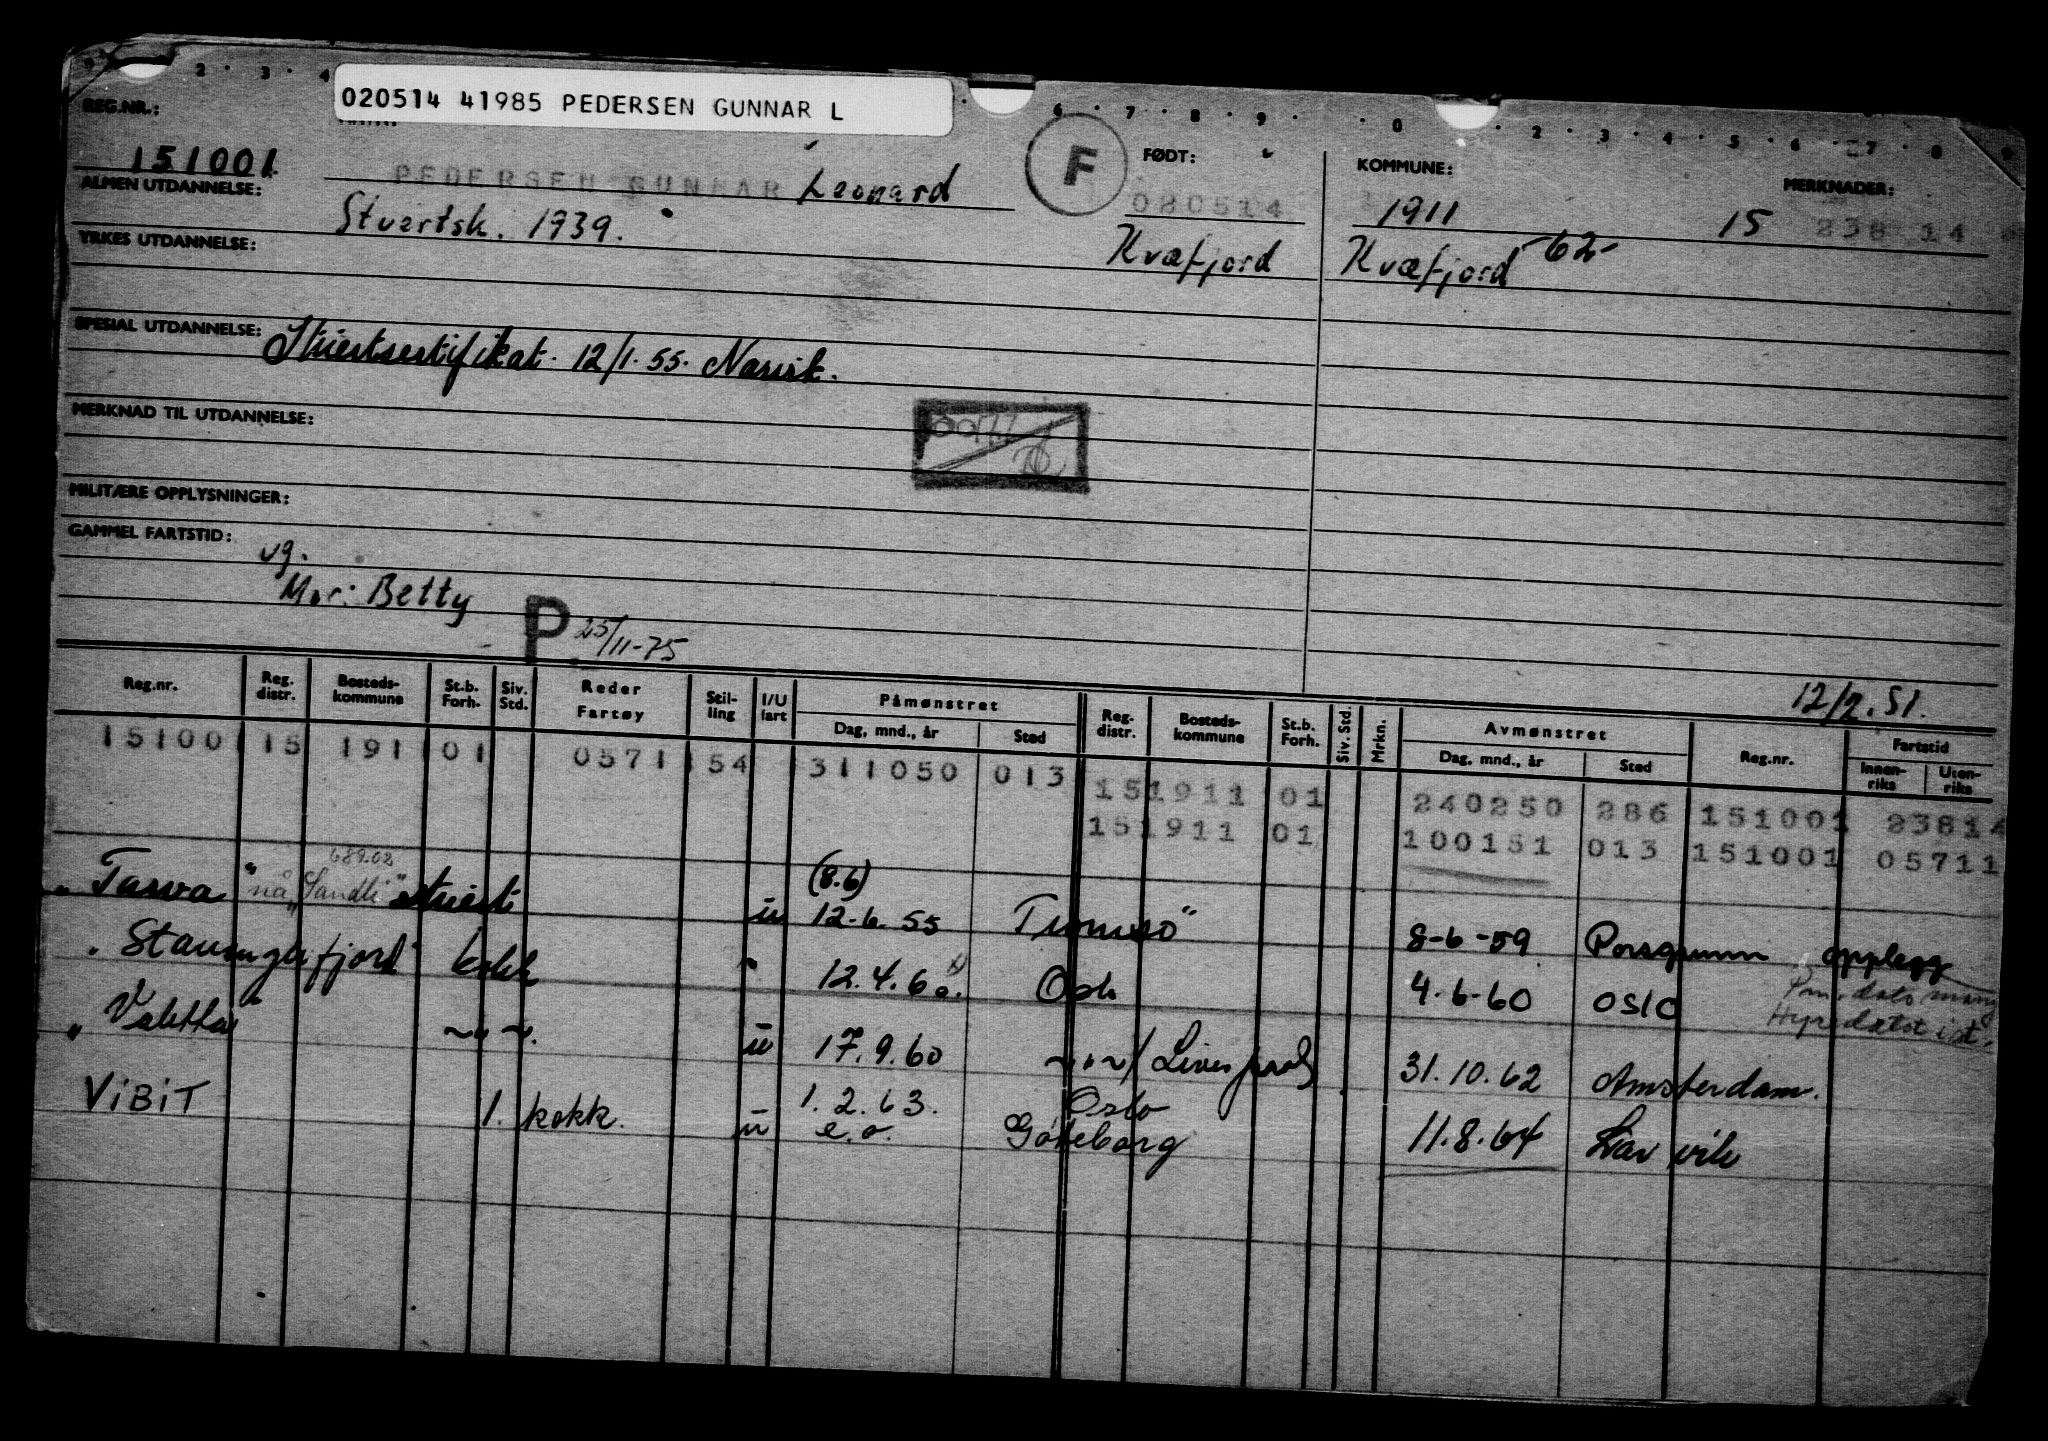 020514 41985 PEDERSEN GUNNAR L
REG.NR.: 151001 PEDERSEN GUNNAR Leonard F FØDT: 080514 KOMMUNE: 1911 15 MERKNADER: 23814
ALMEN UTDANNELSE: Stuertsk. 1939. Kvæfjord Kvæfjord -62-
YRKES UTDANNELSE:
SPESIAL UTDANNELSE: Stuertsertifikat 12/1.55. Narvik.
MERKNAD TIL UTDANNELSE:
MILITÆRE OPPLYSNINGER:
GAMMEL FARTSTID: ug.
Mor: Betty
P 25/11-75
12/2.51.
Reg.nr. Reg. distr. Bosteds-kommune St.b. Forh. Siv. Std. Reder Fartøy Stil-ling I/U fart Påmønstret Dag, mnd., år Sted Reg-distr. Bosteds-kommune St.b. Forh. Siv. Std. Mrkn. Avmønstret Dag, mnd., år Sted Reg.nr. Fartstid Innen-riks Uten-riks
15100 15 191 01 0571 54 311050 013 151911 01 240250 286 151001 23814
151911 01 100151 013 151001 05711
"Tasva" nå "Sandli" 689.02 stuert u (8.6) 12-6.55 Tromsø 8-6-59 Porsgrunn opplegg
"Stavangerfjord" kokk " 12.4.60. Oslo 4.6-60 OSLO
"Valetta" ~"~. u 17.9.60 ~"~/Liverpool 31.10.62 Amsterdam.
ViBiT 1. kokk. u 1.2.63. e.o. Oslo Göteborg 11.8.64 Larvik